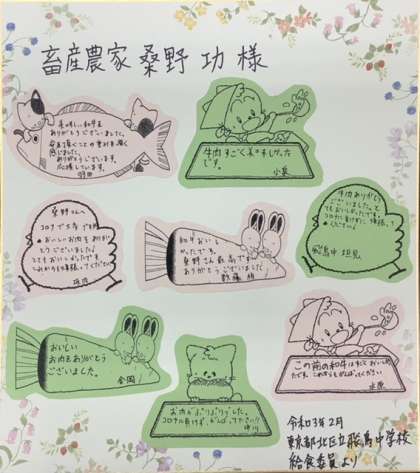 畜産農家 桑野 功 様
美味しい和牛を
ありがとうございました。
感じました。
ありがとうございます。
応援しています。
羽田
牛肉すごく美味しかった
です。
小泉
桑野さんへ
コロナで大変ですが
おいしいお肉をありが
とうございました!
とてもおいしかったです
和牛おいし
かったです。
桑野さん最高です
ありがとうございました
牛肉ありがとう
ございました。と
てもおいしかったです。
コロナに負けず、頑張って
ください。
飛鳥中
おいしい
お肉をありがとう
ございました。
金岡
お肉がぷりぷりでした。
コロナに負けず、がんばって下さい!!
この前の和牛はすごくおいしかっ
たです。これからもがんばってください
水原
令和3年2月
東京都北区立飛鳥中学校
給食委員より